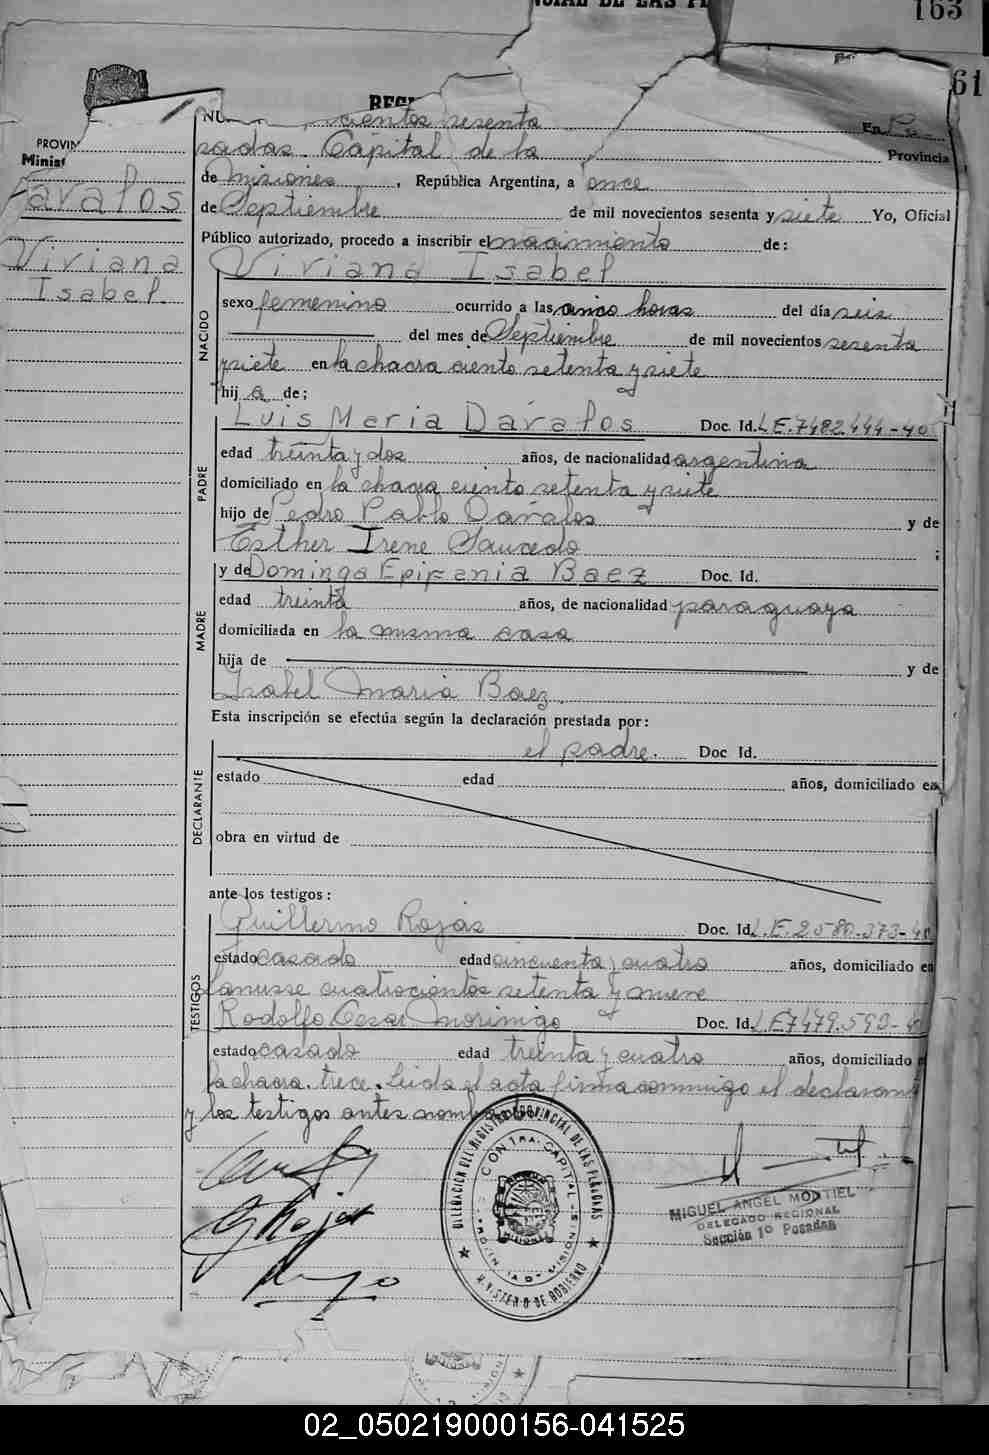 163
61
PROVIN
Minist
Davalos
Viviana
Isabel.
REGI
NU cientos sesenta En Po-
sadas. Capital de la Provincia
de Misiones, República Argentina, a once
de Septiembre de mil novecientos sesenta y siete Yo, Oficial
Público autorizado, procedo a inscribir el nacimiento de:
Viviana Isabel
NACIDO
sexo femenino ocurrido a las cinco horas del día seis
del mes de Septiembre de mil novecientos sesenta
y siete en la chacra ciento setenta y siete
hij a de;
PADRE
Luis Maria Davalos Doc. Id. L.E. 7482.444-40
edad treinta y dos años, de nacionalidad argentina
domiciliado en la chacra ciento setenta y siete
hijo de Pedro Pablo Davalos y de
Esther Irene Saucedo ;
MADRE
y de Dominga Epifania Baez Doc. Id.
edad treinta años, de nacionalidad paraguaya
domiciliada en la misma casa
hija de y de
Isabel Maria Baez.
Esta inscripción se efectúa según la declaración prestada por:
el padre. Doc Id.
DECLARANTE
estado edad años, domiciliado en
obra en virtud de
ante los testigos:
TESTIGOS
Guillermo Rojas Doc. Id. L.E. 2580.373-40
estado casado edad cincuenta y cuatro años, domiciliado en
Lanusse cuatrocientos setenta y nueve
Rodolfo Cesar Morinigo Doc. Id. L.E. 7479.593-40
estado casado edad treinta y cuatro años, domiciliado
la chacra trece. Leida el acta firma conmigo el declarante
y los testigos antes nombrados
DELEGACION DEL REGISTRO PROVINCIAL DE LAS PERSONAS
MINISTERIO DE GOBIERNO
MIGUEL ANGEL MONTIEL
DELEGADO REGIONAL
Sección 1º Posadas
02_050219000156-041525